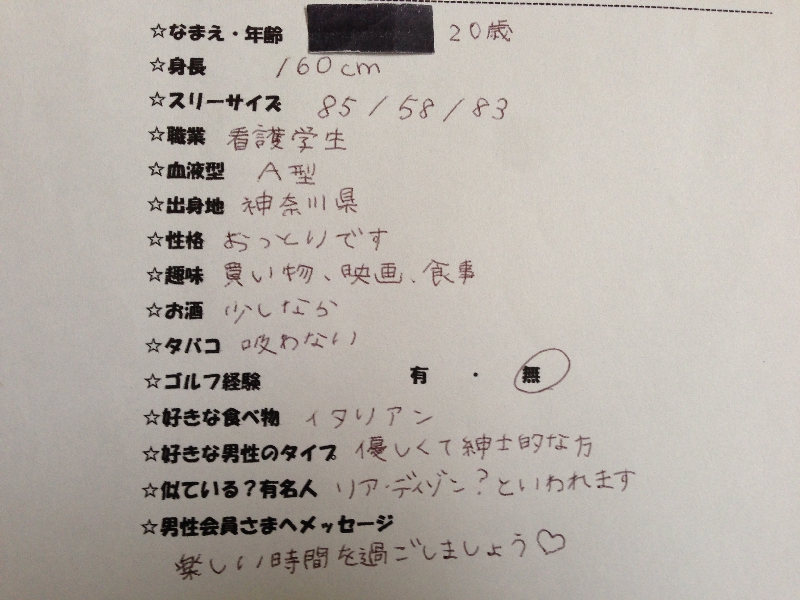 ☆なまえ・年齢 20歳
☆身長 160cm
☆スリーサイズ 85/58/83
☆職業 看護学生
☆血液型 A型
☆出身地 神奈川県
☆性格 おっとりです
☆趣味 買い物、映画、食事
☆お酒 少しなら
☆タバコ 吸わない
☆ゴルフ経験 有 ・ 無
☆好きな食べ物 イタリアン
☆好きな男性のタイプ 優しくて紳士的な方
☆似ている?有名人 リア・ディゾン?といわれます
☆男性会員さまへメッセージ
楽しい時間を過ごしましょう♡